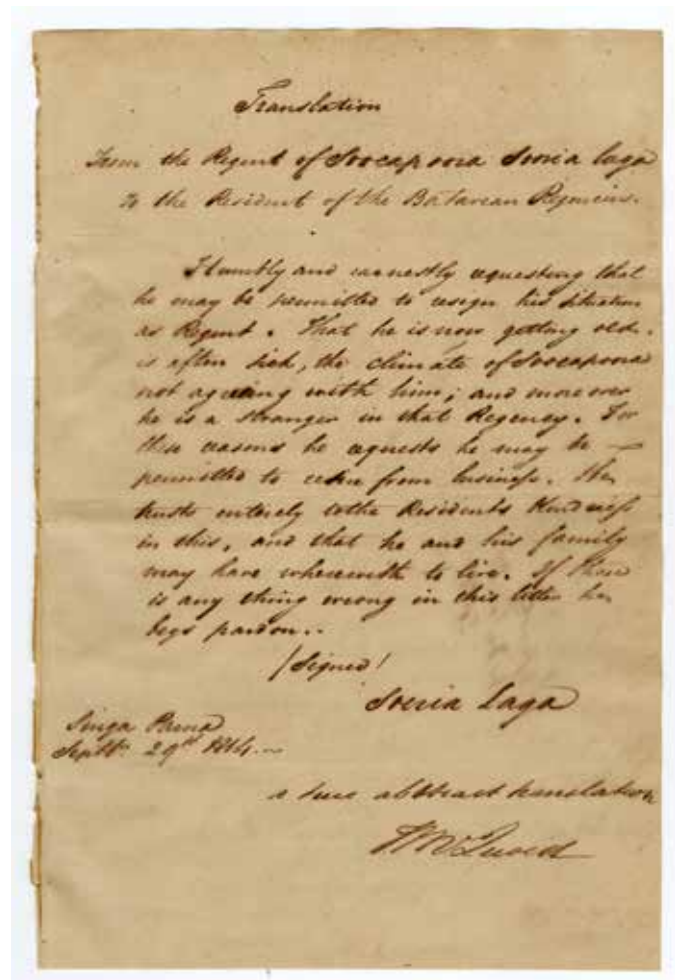 Translation
From the Regent of Soocapoora Sooria Laga
to the Resident of the Batavian Regencies.
Humbly and earnestly requesting that
he may be permitted to resign his situation
as Regent. That he is now getting old.
is often sick, the climate of Soocapoora
not agreeing with him; and moreover
he is a stranger in that Regency. For
these reasons he requests he may be
permitted to retire from business. He
trusts entirely to the Residents Kindness
in this, and that he and his family
may have wherewith to live. If there
is any thing wrong in this letter he
begs pardon..
/Signed/
Sooria Laga
Singa Parna
Septbr. 29th 1814.
a true abstract translation